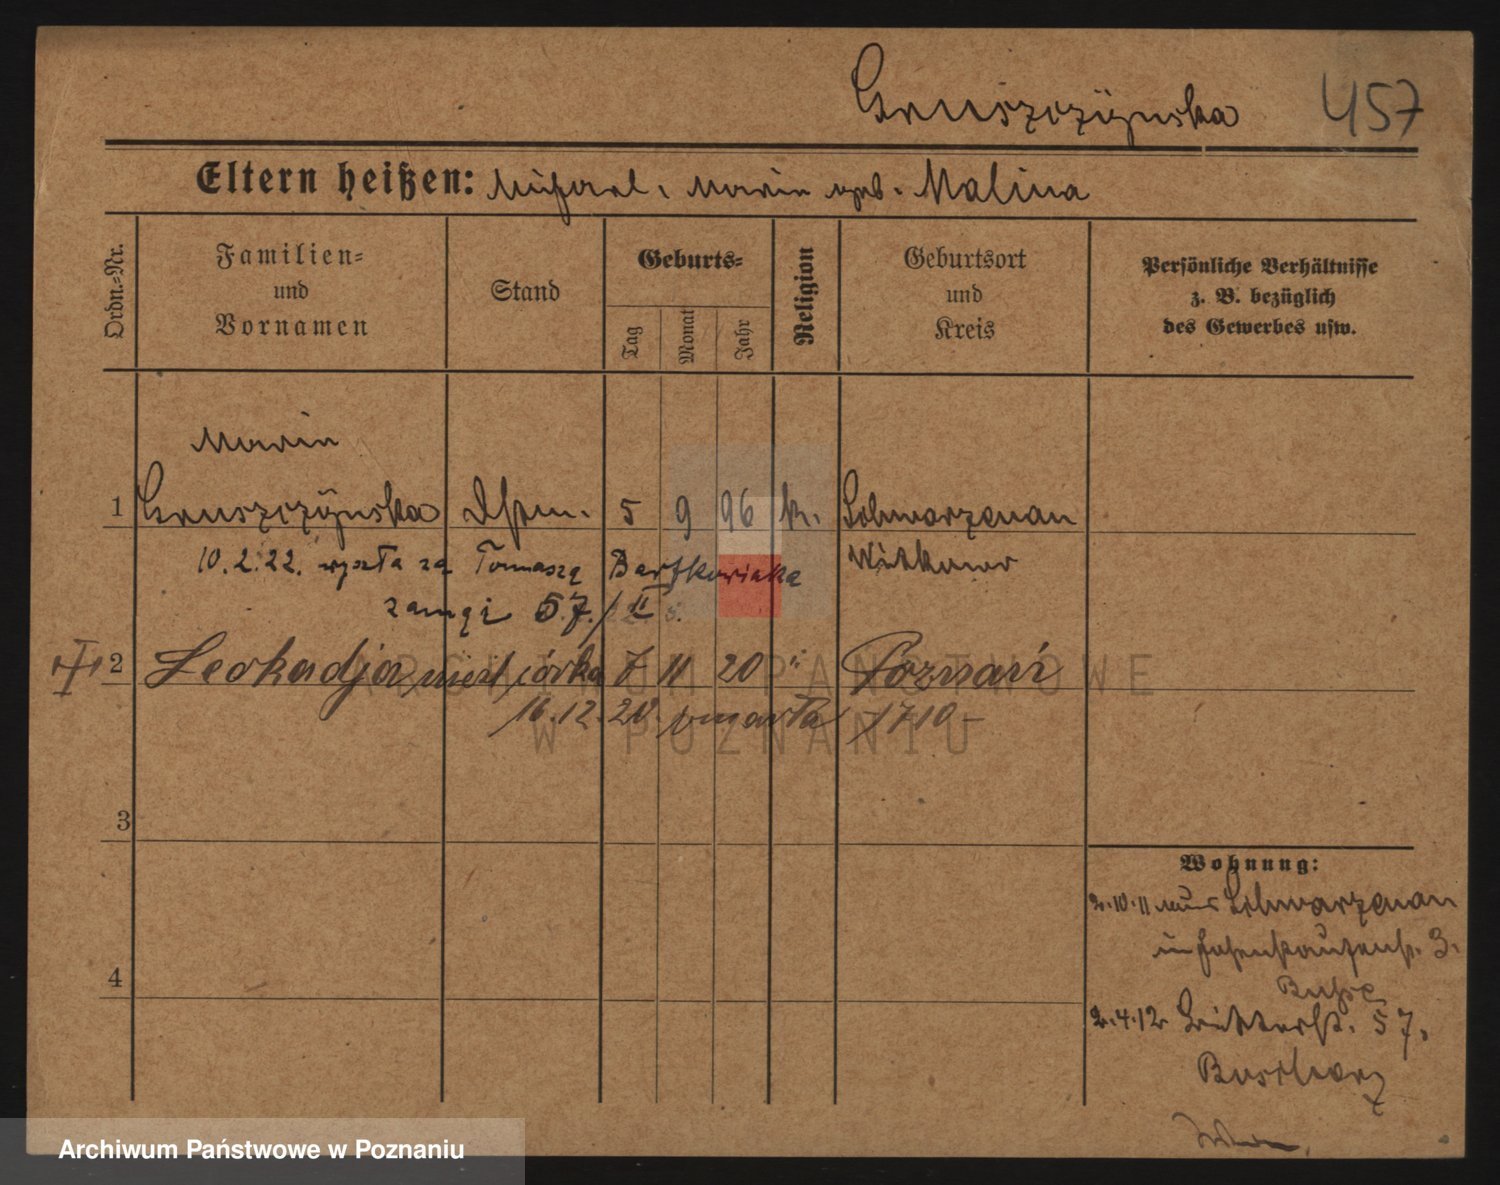 Gruszczÿnska 457
Eltern heißen: Michael, Marie geb. Malina
Ordn.-Nr.
Familien-
und
Vornamen
Stand
Geburts-
Tag
Monat
Jahr
Religion
Geburtsort
und
Kreis
Persönliche Verhältnisse
z. B. bezüglich
des Gewerbes usw.
Marie
1 Gruszczÿnska 5 9 96 k. Schwarzenau
10.2.22. wyszła za Tomasza Bartkowiaka Witkowo
zamęż 57/II
2 Leokadja córka 7 11 20 " Poznań
16.12.20. umarła 1710
3
4
Wohnung:
2.10.11 aus Schwarzenau
in 3.
Busse
2.4.12 57.
ARCHIWUM PAŃSTWOWE
W POZNANIU
Archiwum Państwowe w Poznaniu